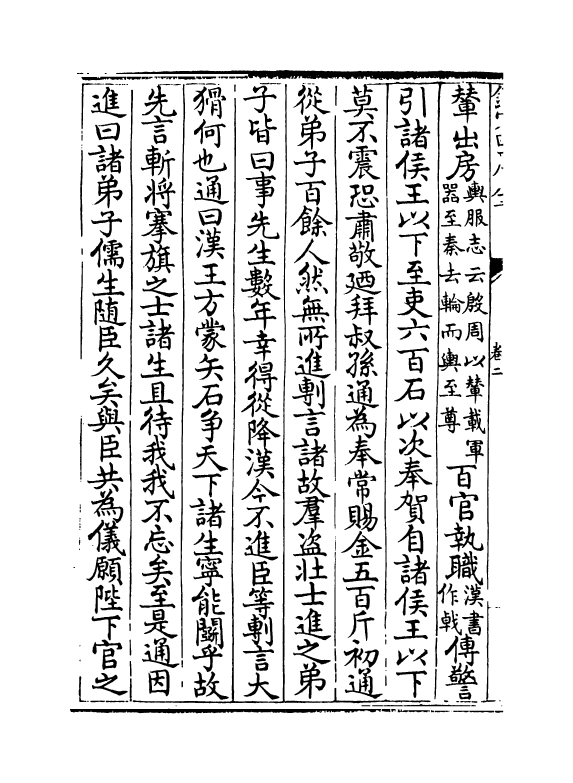 輦出房輿服志云殷周以輦載軍器至秦去輪而輿至尊百官執職漢書作戟傳警
引諸侯王以下至吏六百石以次奉賀自諸侯王以下
莫不震恐肅敬廼拜叔孫通為奉常賜金五百斤初通
從弟子百餘人然無所進剸言諸故羣盗壯士進之弟
子皆曰事先生數年幸得從降漢今不進臣等剸言大
猾何也通曰漢王方蒙矢石争天下諸生寧能鬭乎故
先言斬將搴旗之士諸生且待我我不忘矣至是通因
進曰諸弟子儒生随臣久矣與臣共為儀願陛下官之
卷二